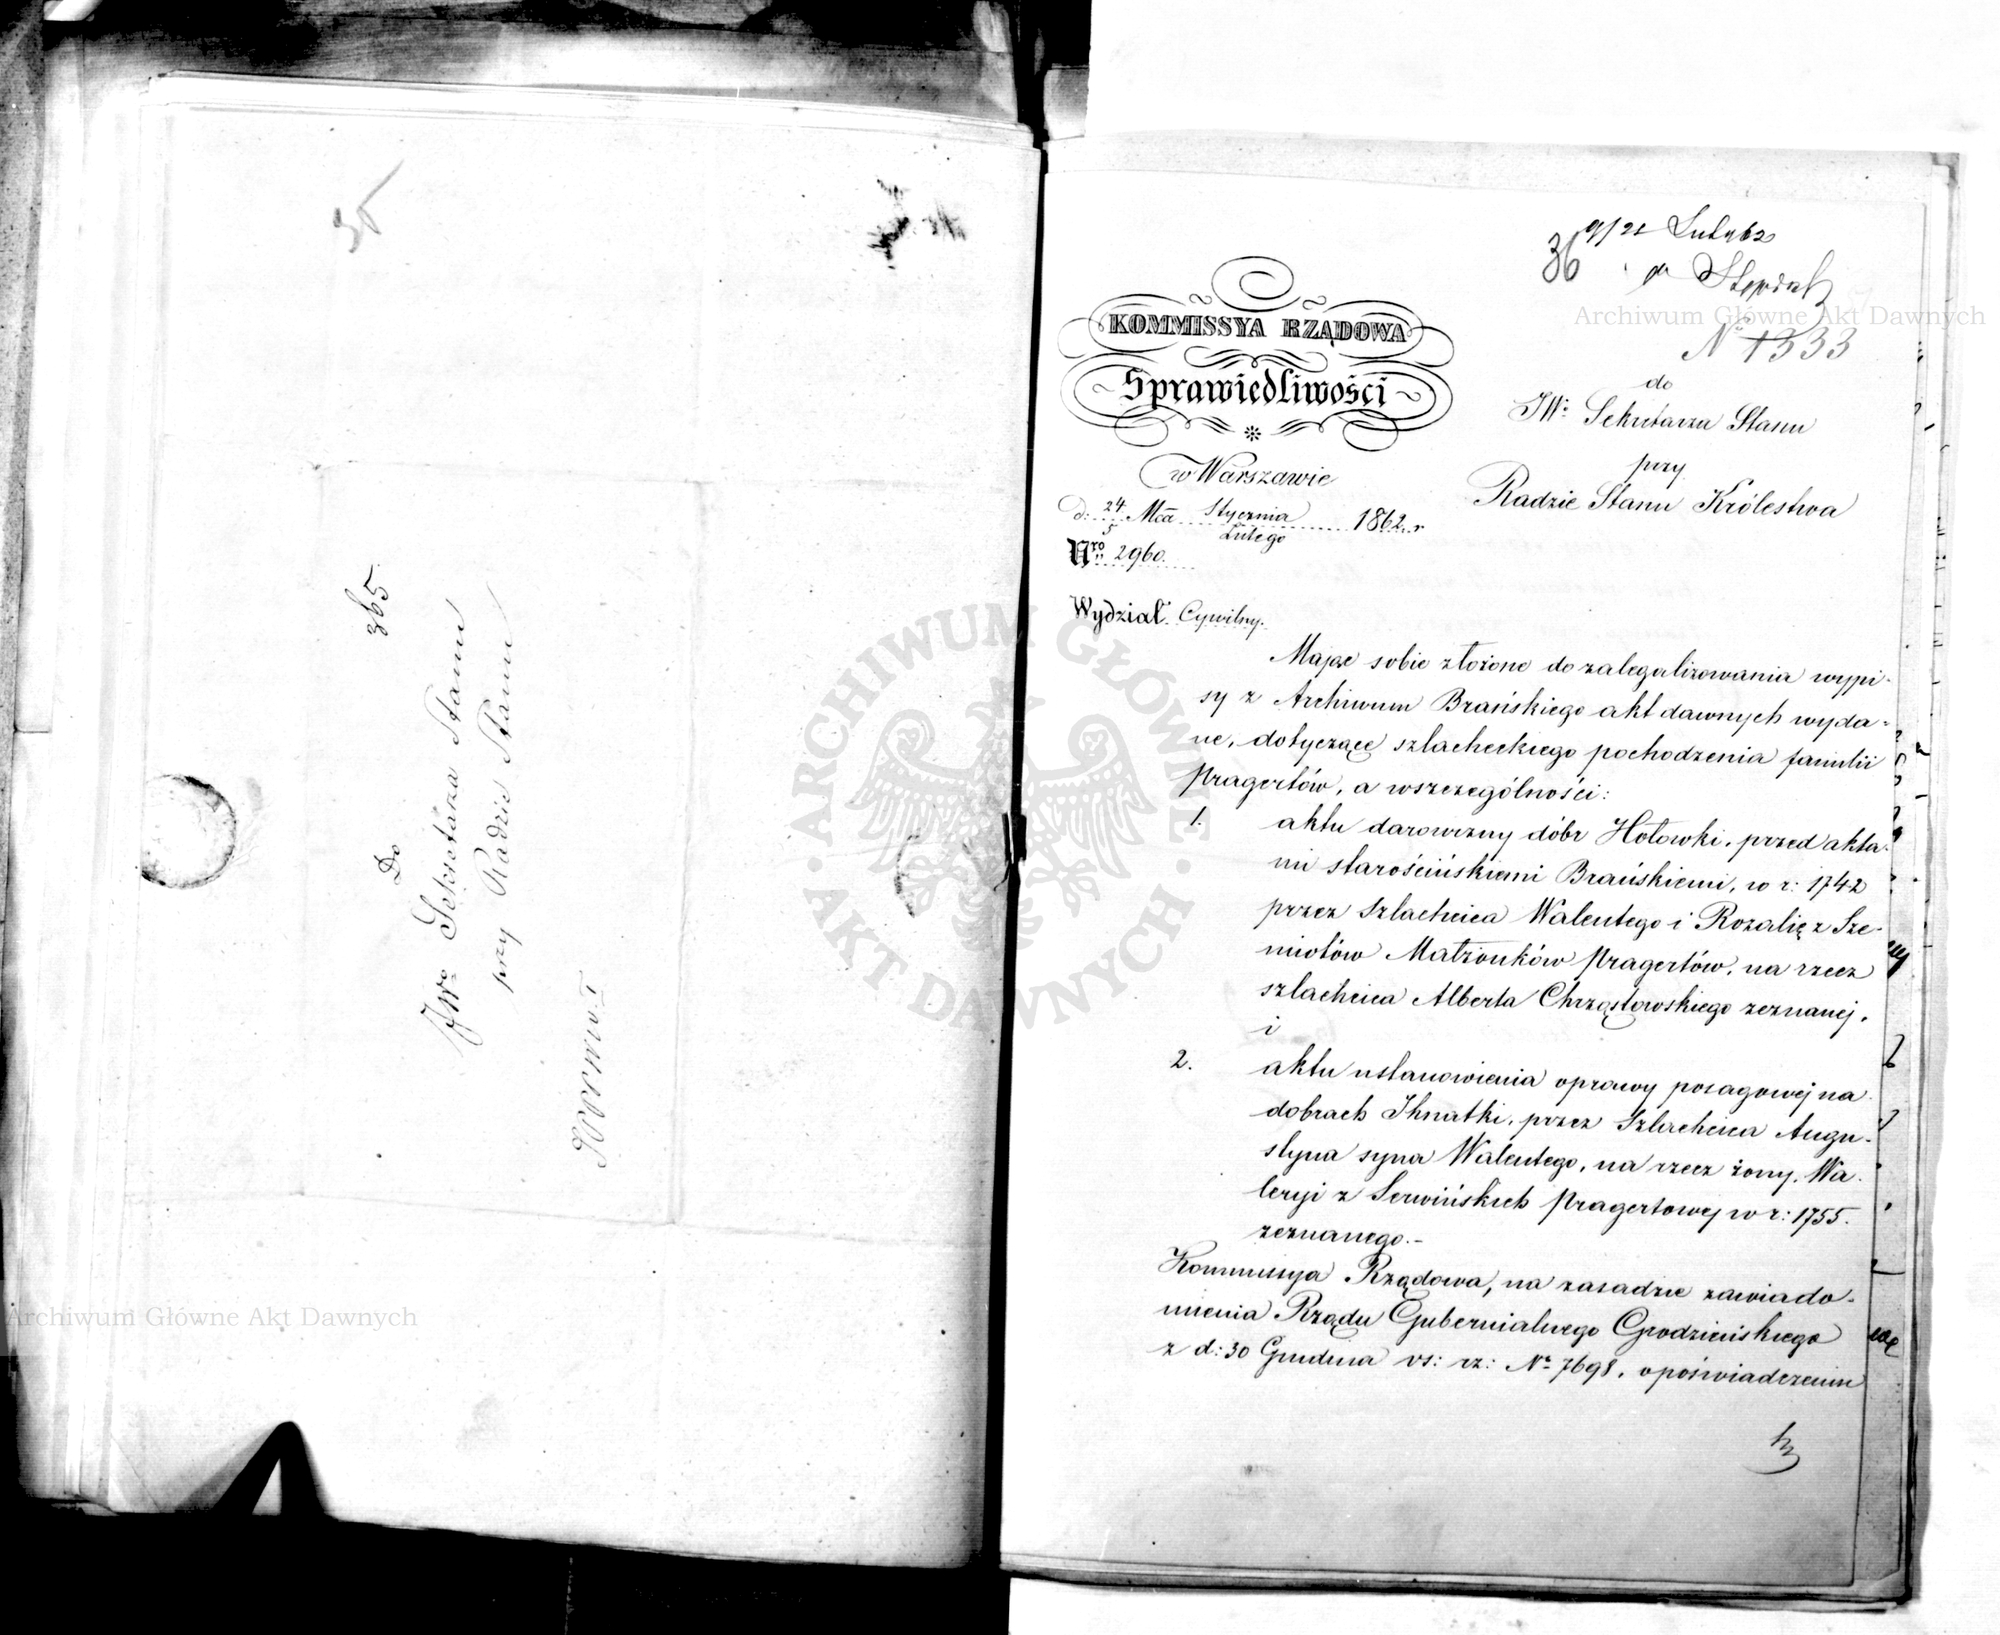 35
365.
Do
JWo Sekretarza Stanu
przy Radzie Stanu
9/21 Lut 62
36
No 1333
KOMMISSYA RZĄDOWA
Sprawiedliwości
w Warszawie
d: 24/5 Mca Stycznia/Lutego 1862 r
Nro 2960.
Wydział Cywilny.
do
JWo Sekretarza Stanu
przy
Radzie Stanu Królestwa
Mając sobie złożone do zalegalizowania wypi-
sy z Archiwum Brańskiego akt dawnych wyda-
ne, dotyczące szlacheckiego pochodzenia familii
Pragertów, a wszczególności:
1. aktu darowizny dóbr Hołowki, przed akta-
mi starościńskiemi Brańskiemi, w r: 1742
przez Szlachcica Walentego i Rozalię z Sze-
miotów Małżonków Pragertów, na rzecz
szlachcica Alberta Chrząstowskiego zeznanej,
i
2. aktu ustanowienia oprawy posagowej na
dobrach Ihnatki, przez Szlachcica Augu-
styna syna Walentego, na rzecz żony, Wa-
leryi z Serwińskich Pragertowej w r: 1755.
zeznanego.-
Kommissya Rządowa, na zasadzie zawiado-
mienia Rządu Gubernialnego Grodzieńskiego
z d: 30 Grudnia vs: rz: No 7698, o poświadczeniu
Archiwum Główne Akt Dawnych
Archiwum Główne Akt Dawnych
· ARCHIWUM GŁÓWNE · AKT DAWNYCH